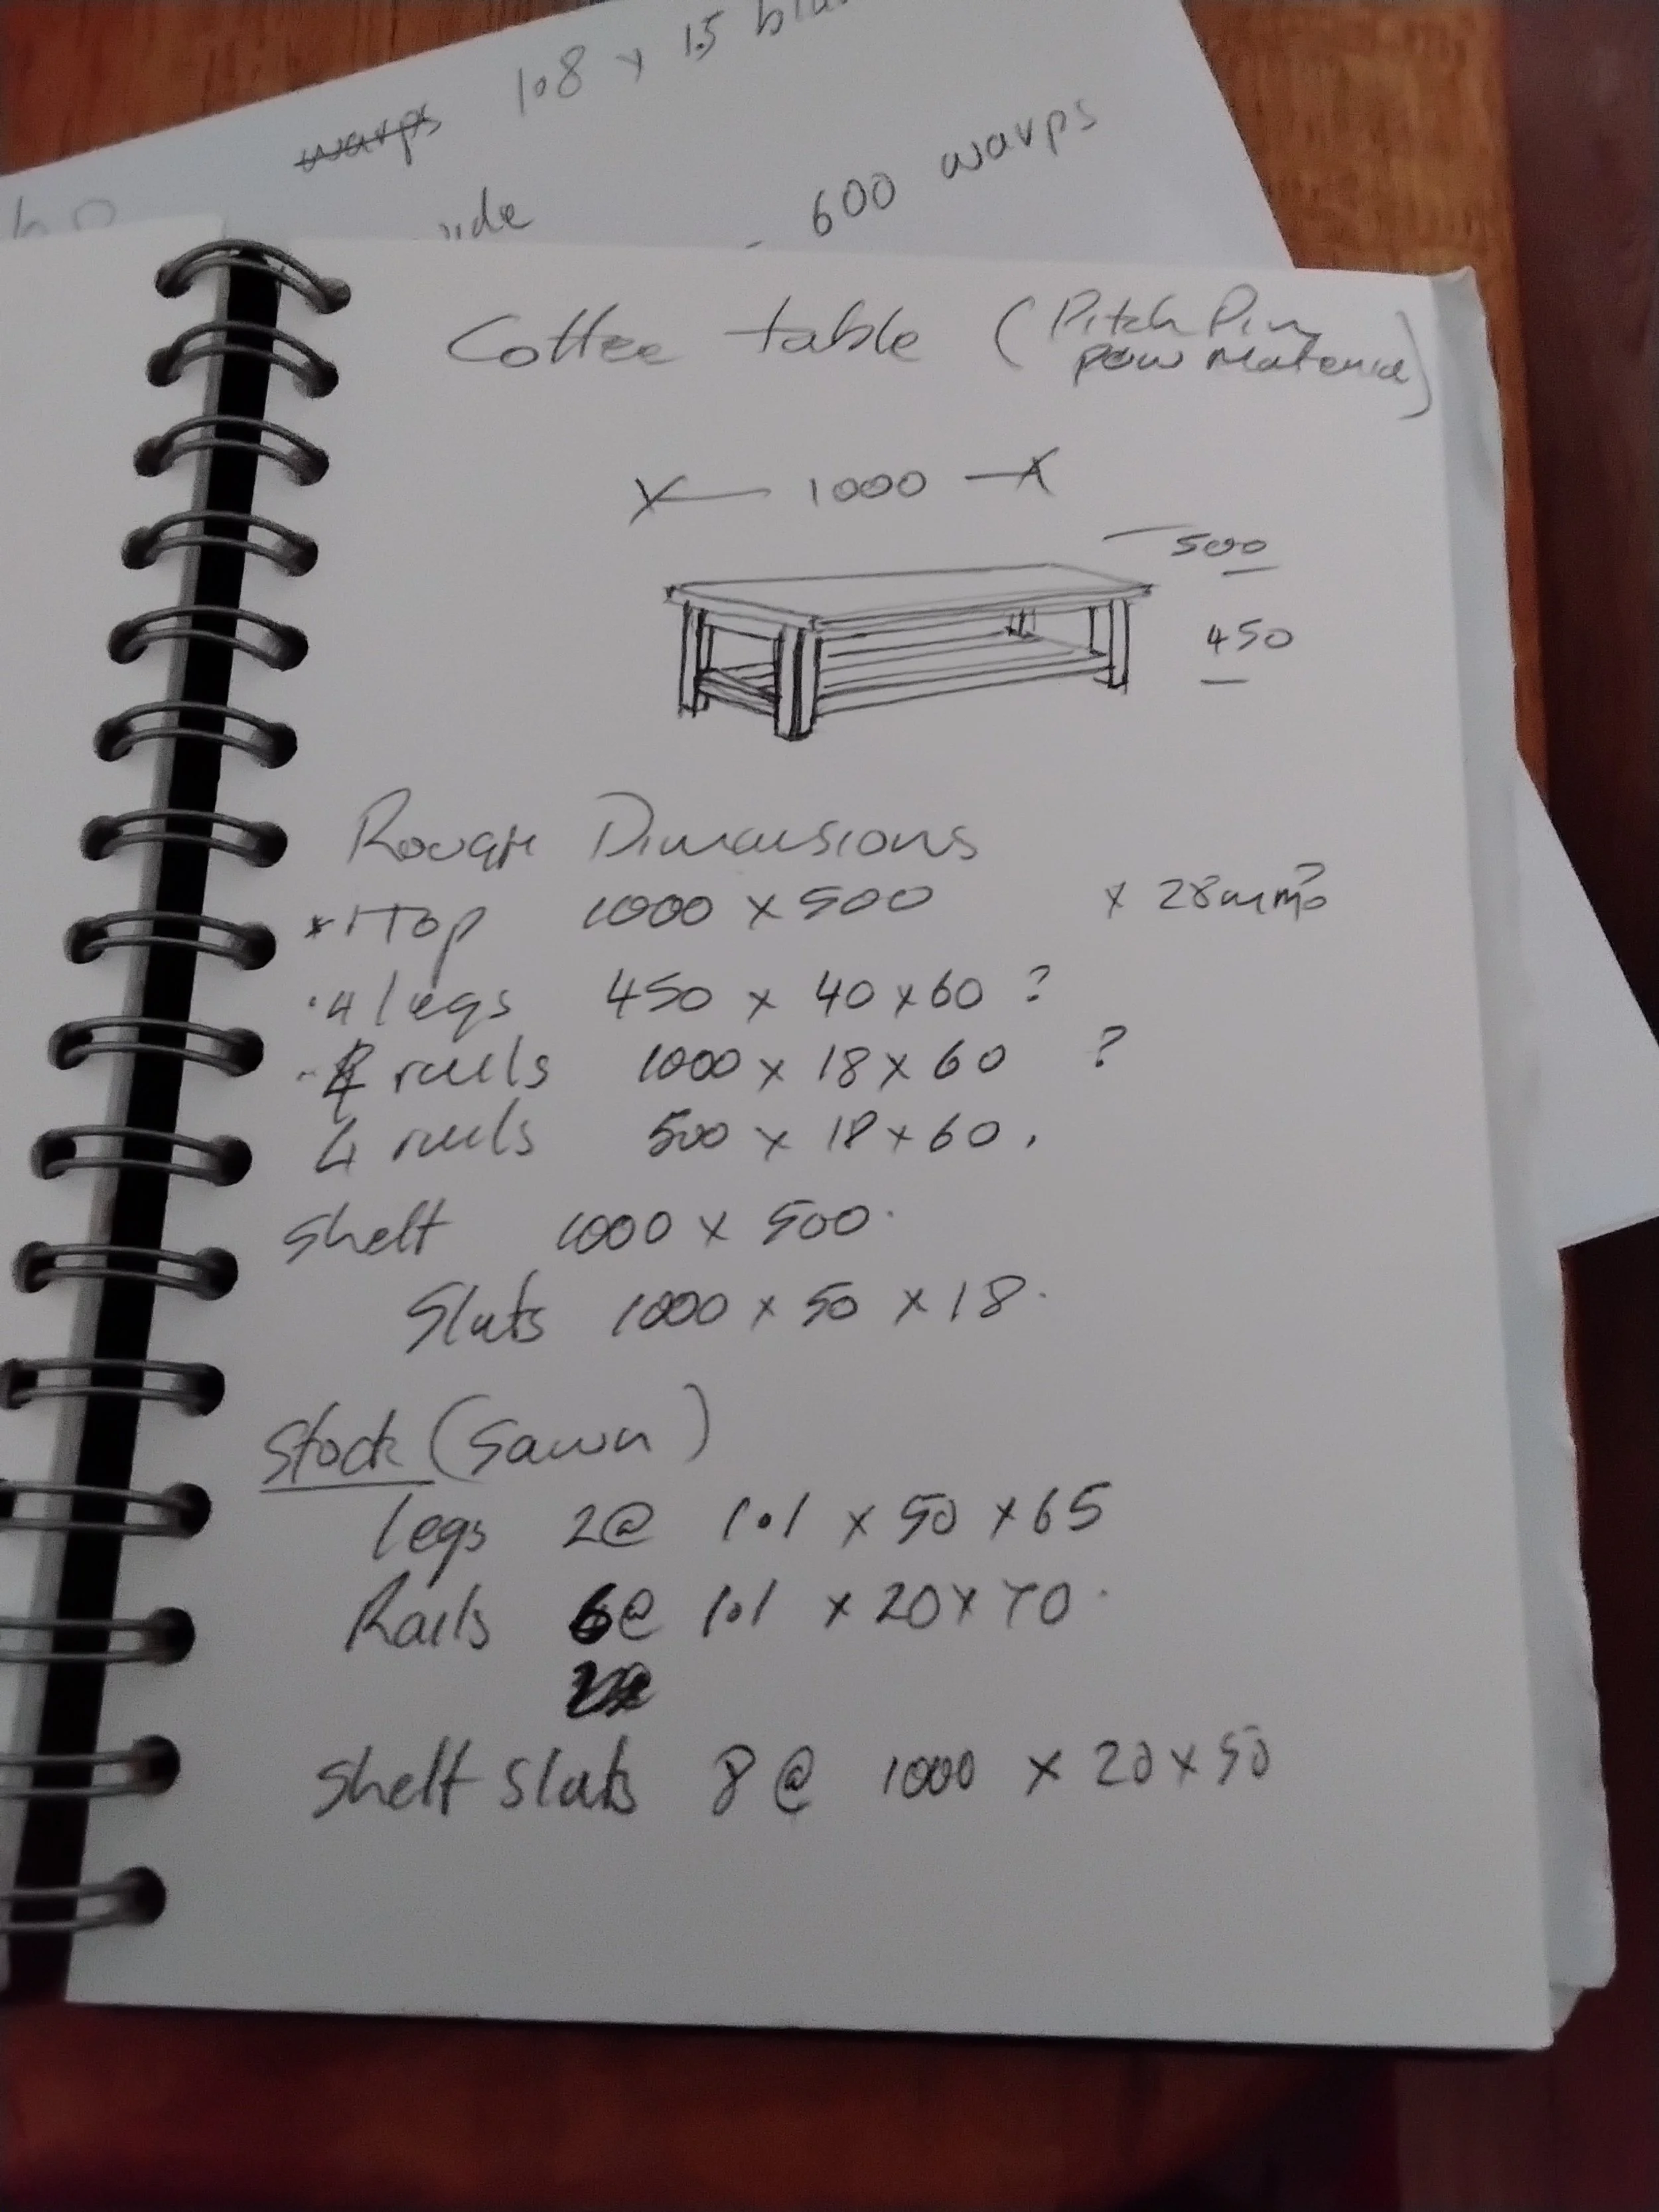 warps 1.8 x 15
600 warps
Coffee table (Pitch Pine
pew Material)
1000
500
450
Rough Dimensions
1 Top 1000 x 500 x 28mm?
4 legs 450 x 40 x 60 ?
4 rails 1000 x 18 x 60 ?
4 rails 500 x 18 x 60.
Shelf 1000 x 500.
Slats 1000 x 50 x 18.
Stock (Sawn)
legs 2@ 1.1 x 50 x 65
Rails 6@ 1.1 x 20 x 70.
Shelf Slats 8 @ 1000 x 20 x 50